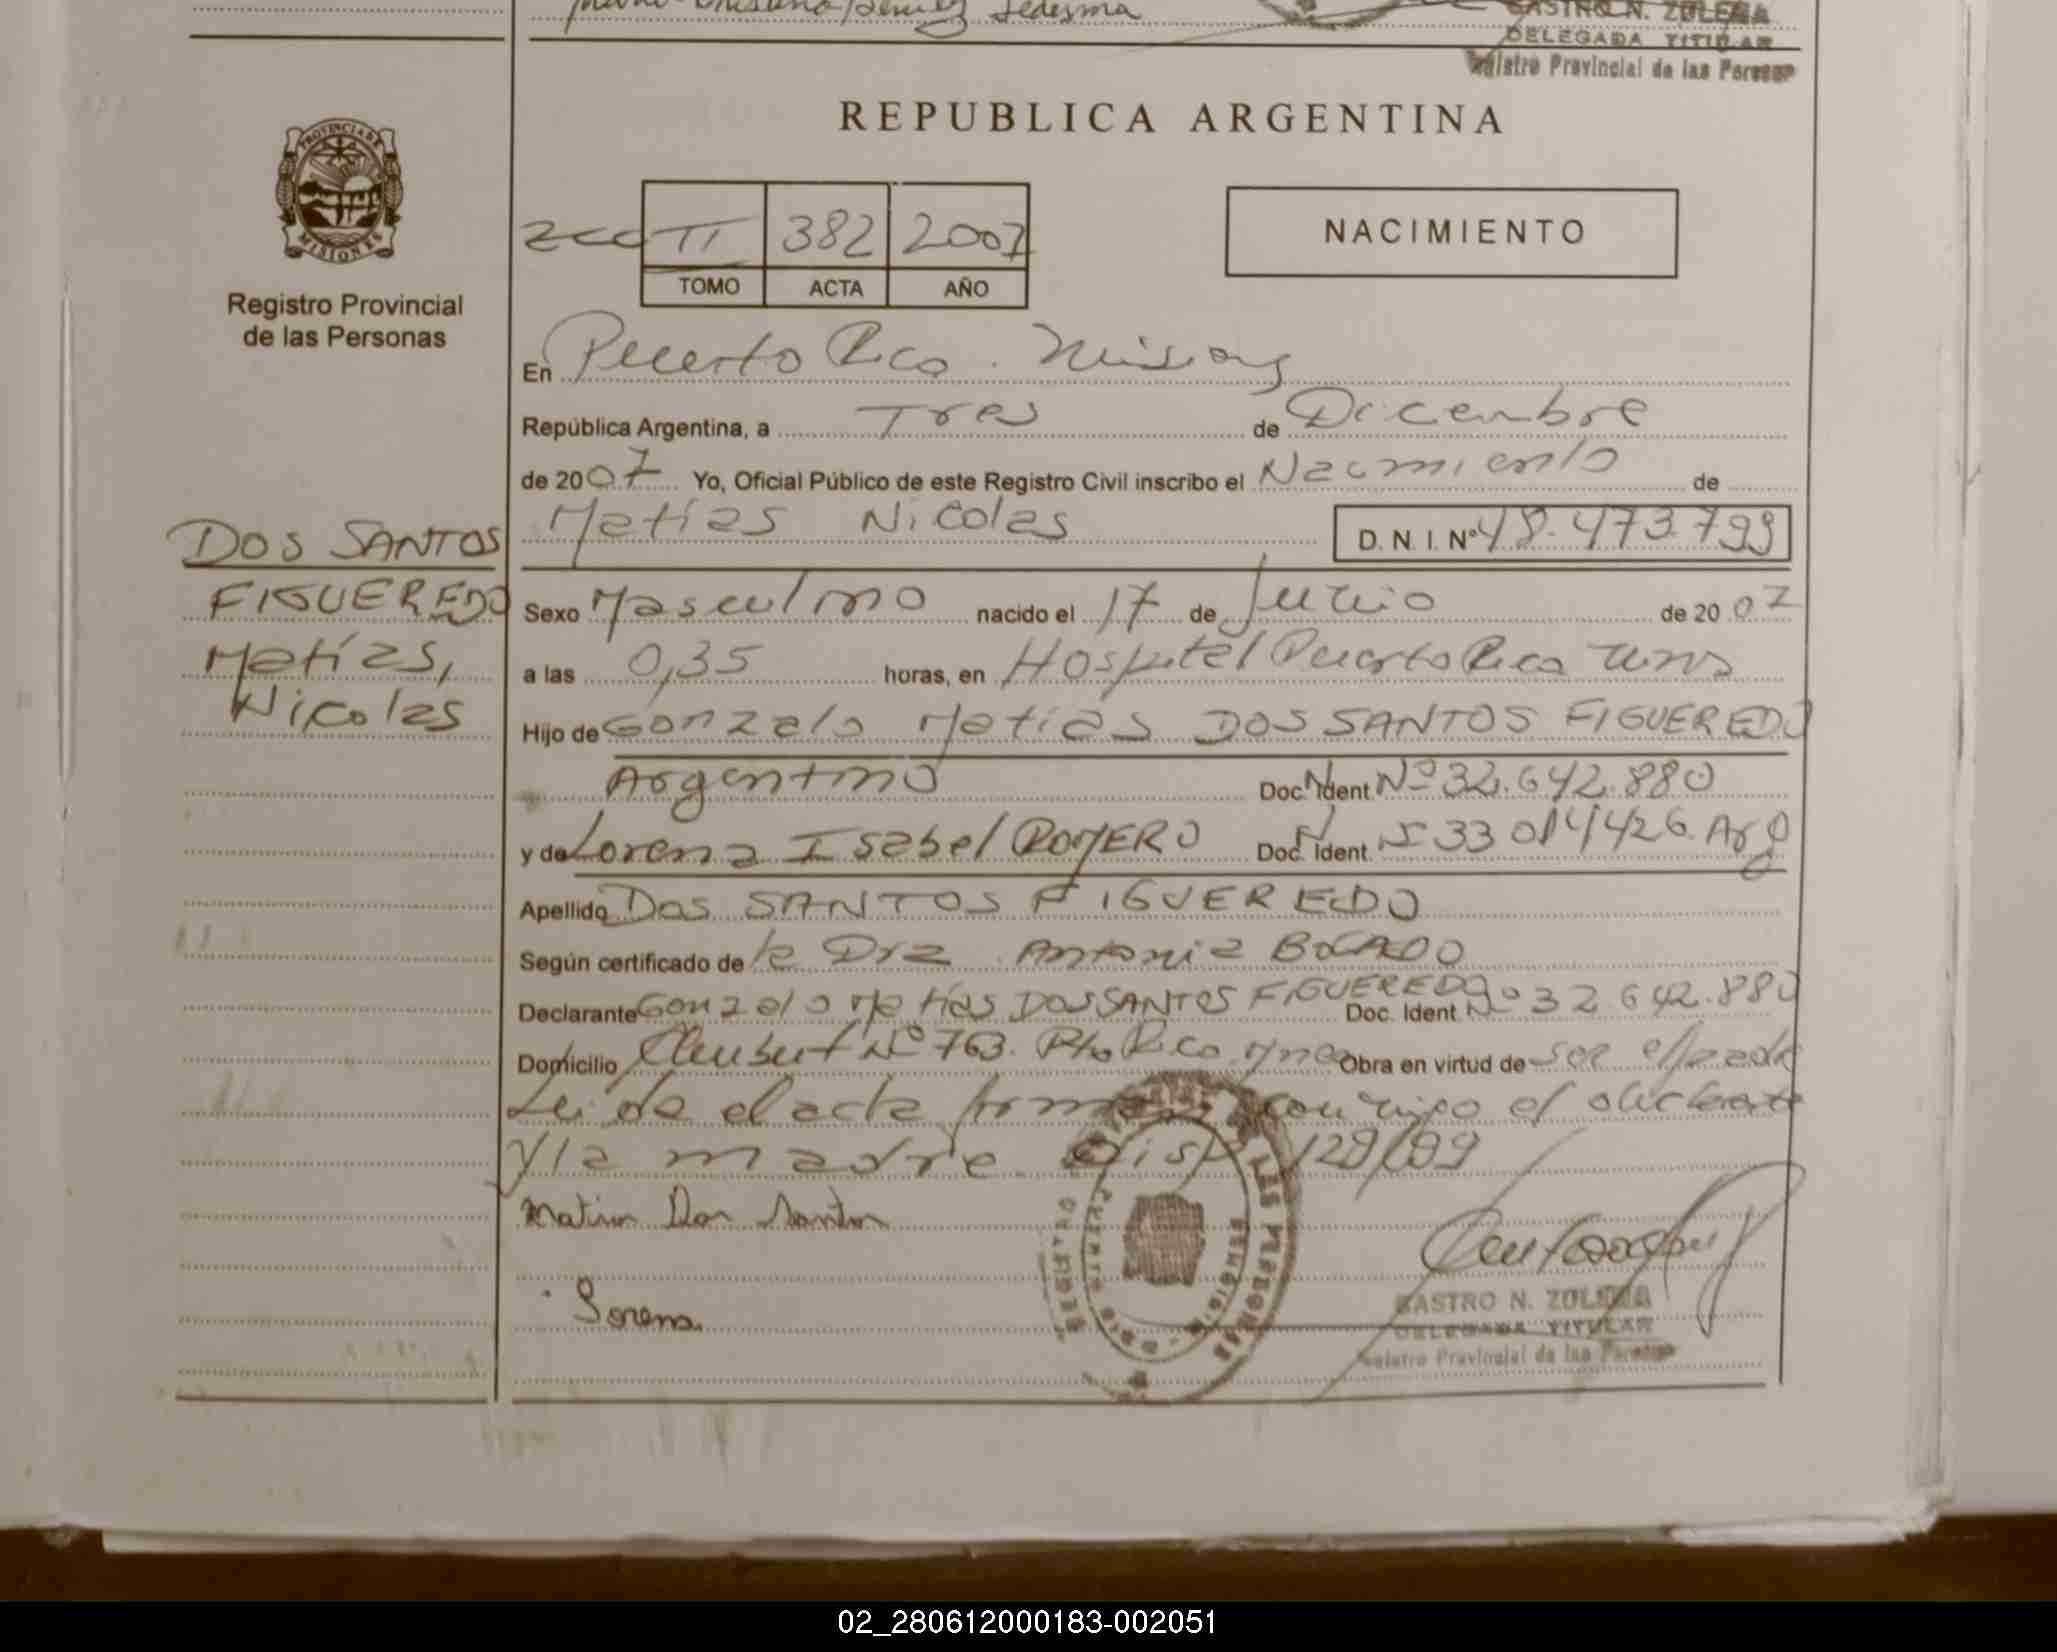 CASTRO N. ZULEMA
DELEGADA TITULAR
Registro Provincial de las Personas
REPUBLICA ARGENTINA
PROVINCIA DE MISIONES
Registro Provincial
de las Personas
II 382 2007
TOMO ACTA AÑO
NACIMIENTO
En Puerto Rico. Misiones
República Argentina, a Tres de Diciembre
de 2007 Yo, Oficial Público de este Registro Civil inscribo el Nacimiento de
Matías Nicolas D. N. I. Nº 48.473.799
DOS SANTOS
FIGUEREDO
Matías,
Nicolas
Sexo Masculino nacido el 17 de Junio de 2007
a las 0,35 horas, en Hospital Puerto Rico
Hijo de Gonzalo Matías DOS SANTOS FIGUEREDO
Argentino Doc. Ident. Nº 32.642.880
y de Lorena Isabel ROMERO Doc. Ident. Nº 33 014426. Arg
Apellido DOS SANTOS FIGUEREDO
Según certificado de la Dra Antonia BOGADO
Declarante Gonzalo Matías DOS SANTOS FIGUEREDO Doc. Ident. Nº 32.642.880
Domicilio Nº 763. Pto Rico Obra en virtud de ser el padre
Leida el acta firman conmigo el declarante
y la madre. Disp. 128/99
Matias Dos Santos
Lorena
CASTRO N. ZULEMA
DELEGADA TITULAR
Registro Provincial de las Personas
02_280612000183-002051